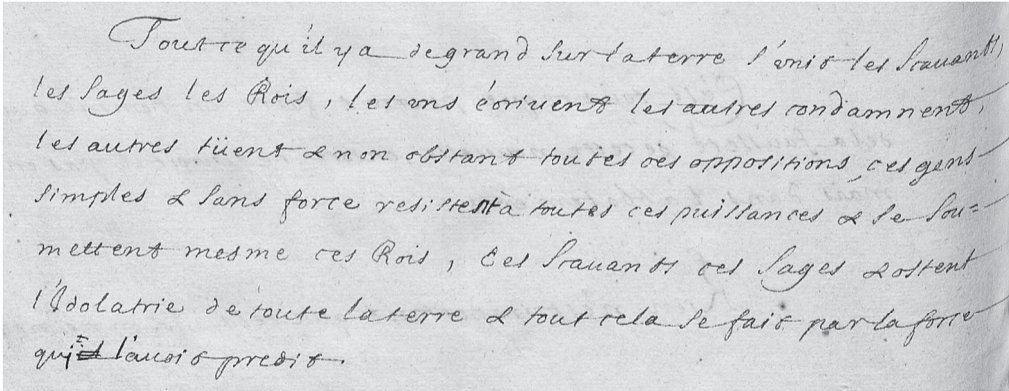 Tout ce qu'il y a de grand sur la terre s'unit les scauants,
les sages les Rois, les uns écriuent les autres condamnent,
les autres tüent & non obstant toutes ces oppositions, ces gens
simples & sans force resistent a toutes ces puissances & se sou=
mettent mesme ces Rois, ces scauants ces sages & ostent
l'Idolatrie de toute la terre & tout cela se fait par la force
qui l'auoit predit.